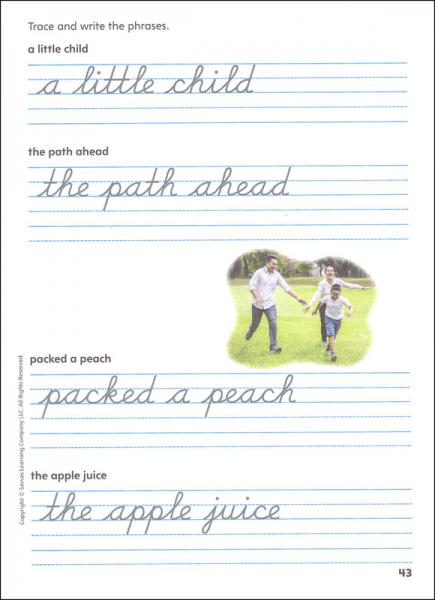 Trace and write the phrases.
a little child
a little child
the path ahead
the path ahead
packed a peach
packed a peach
the apple juice
the apple juice
Copyright © Savvas Learning Company LLC. All Rights Reserved.
43